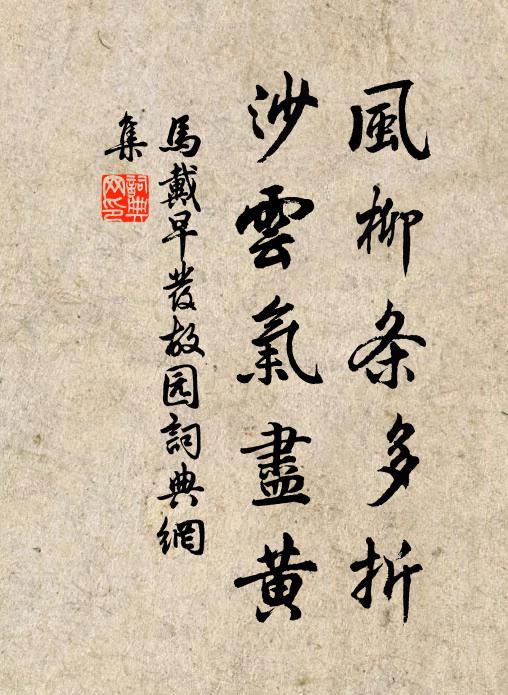 風柳条多折
沙雲氣盡黄
馬戴早發故园詞典網
集
詞典
网印